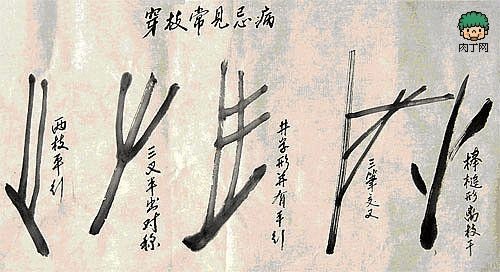 穿枝常见忌病
肉丁网
两枝平引
三叉半出对称
井字形并有平引
三笔交叉
棒槌形离枝干